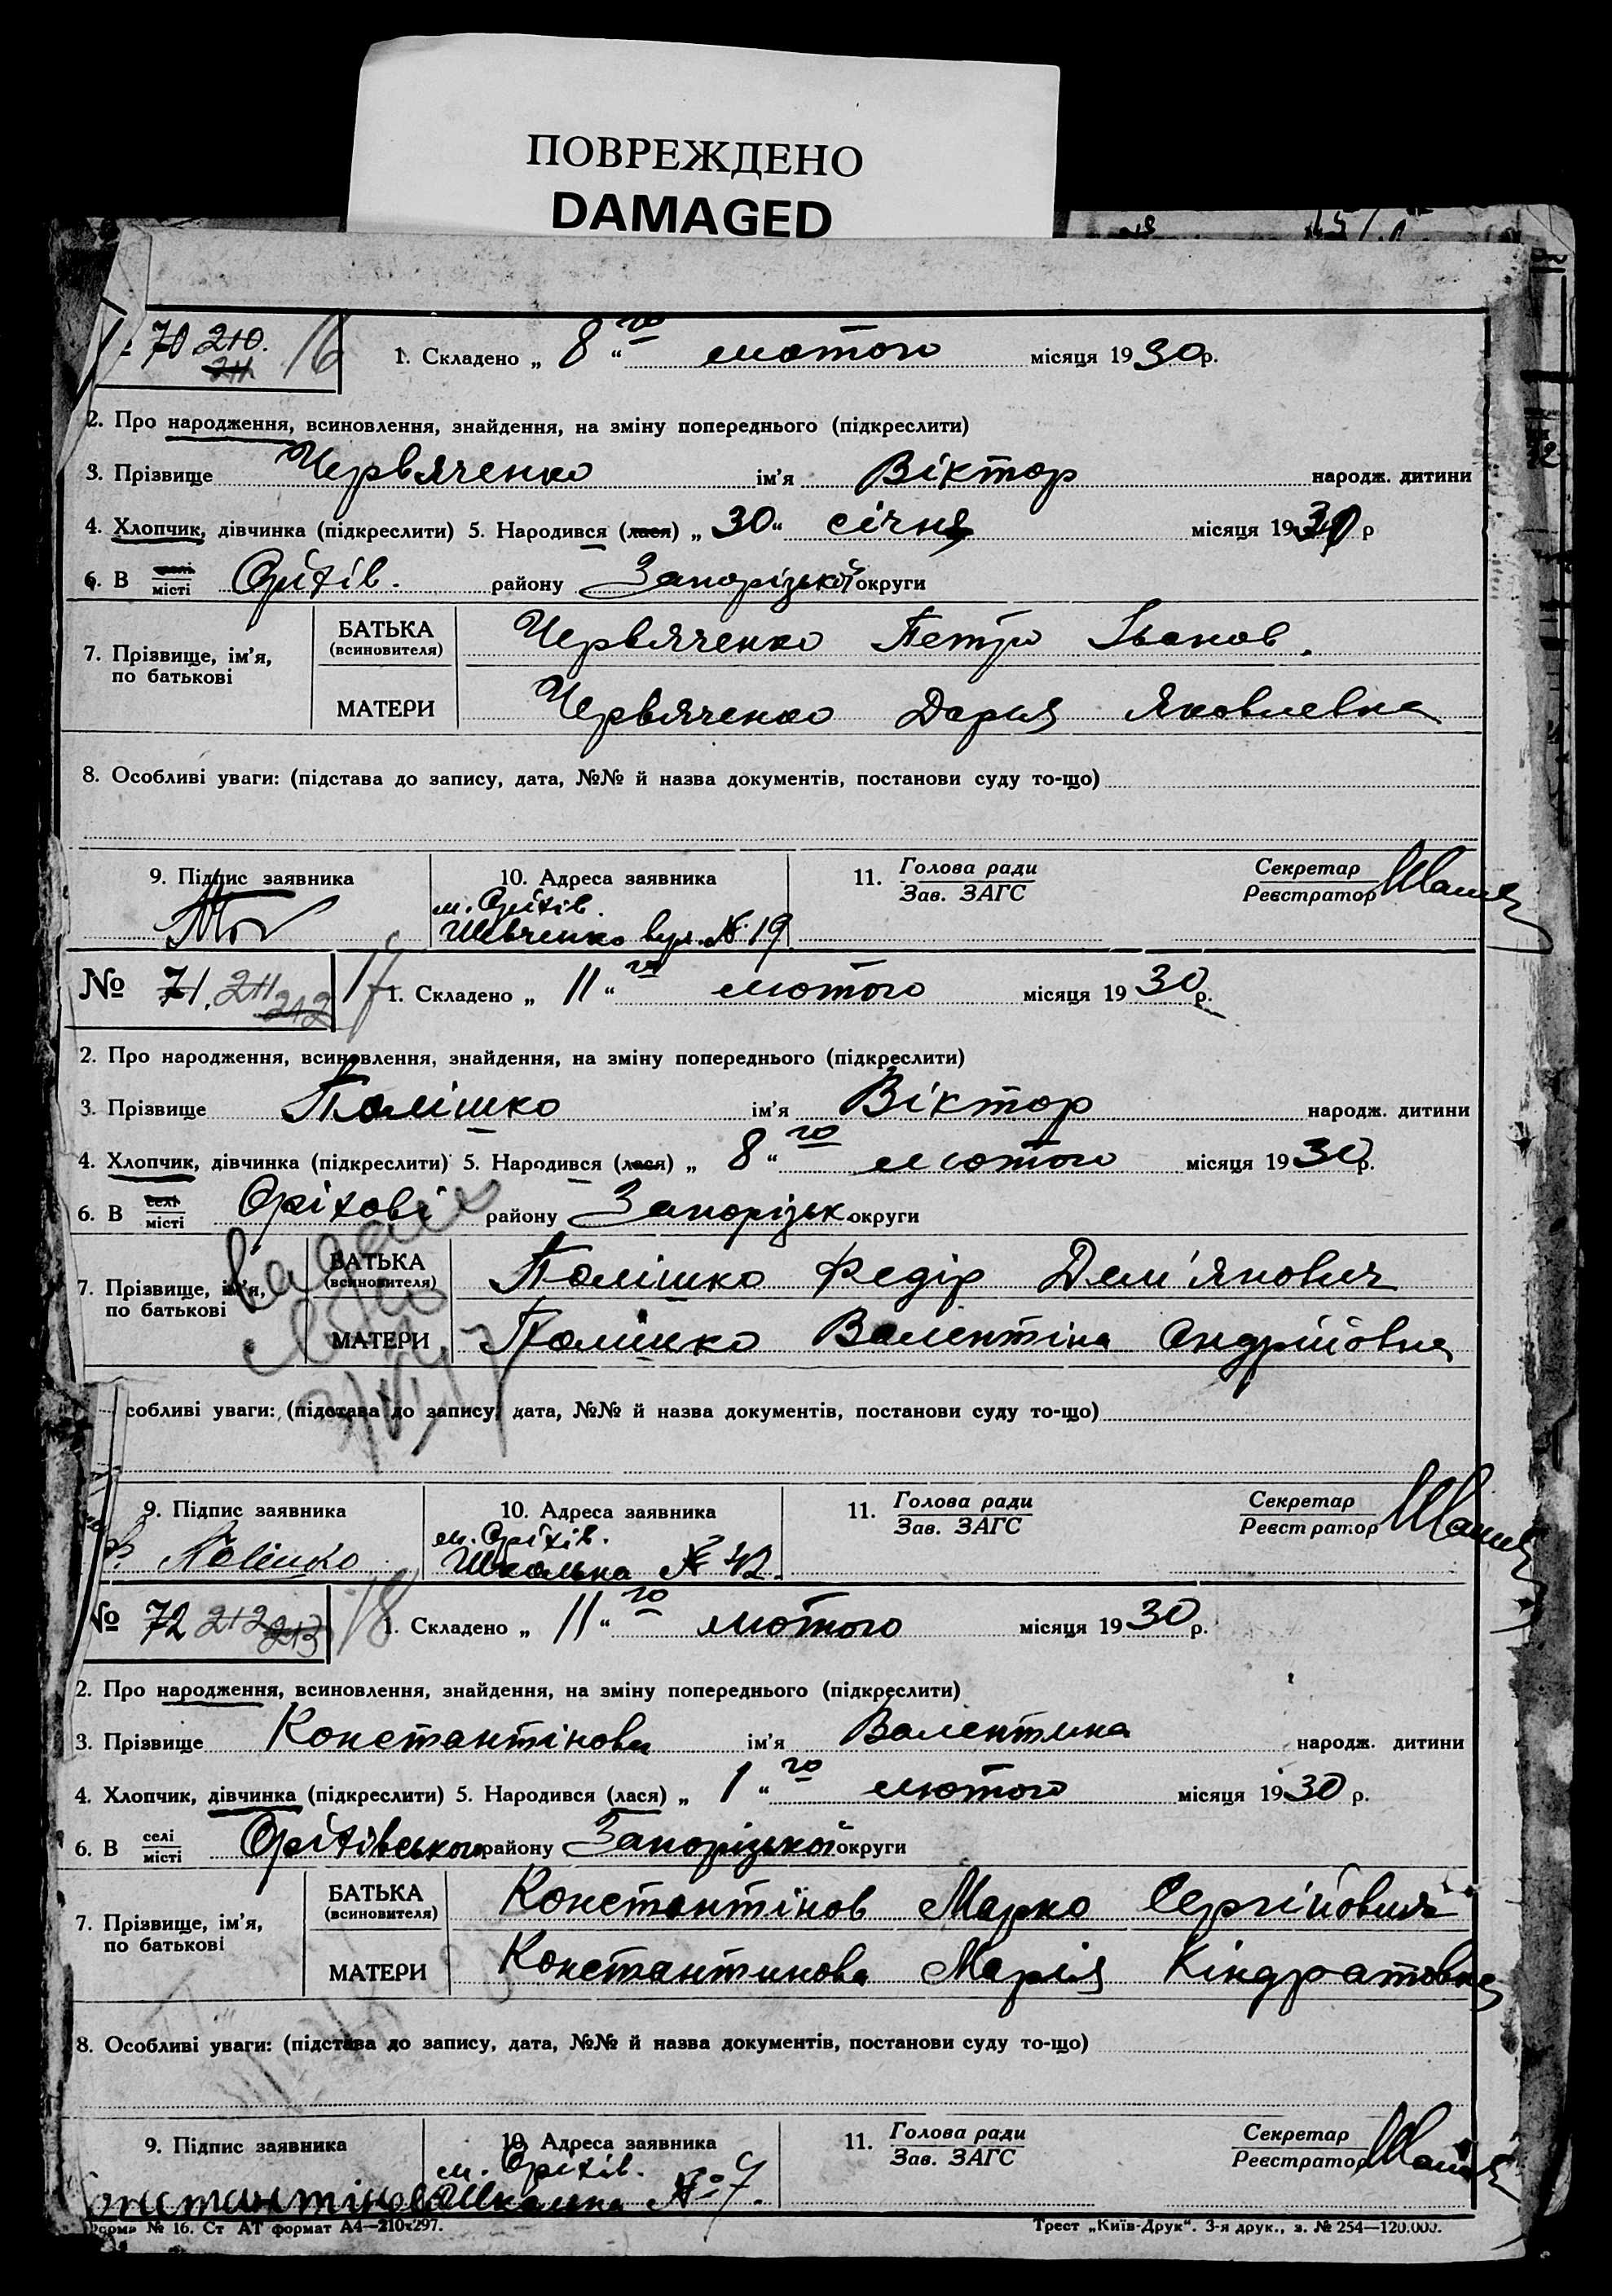 ПОВРЕЖДЕНО
DAMAGED
70 210. 16
211
1. Складено „ 8 “ го лютого місяця 1930р.
2. Про народження, всиновлення, знайдення, на зміну попереднього (підкреслити)
3. Прізвище Червяченко ім'я Віктор народж. дитини
4. Хлопчик, дівчинка (підкреслити) 5. Народився (лася) „ 30 “ січня місяця 1930 р
6. В селі місті Оріхів. району Запорізької округи
7. Прізвище, ім'я, по батькові
БАТЬКА (всиновителя) Червяченко Петро Іванов.
МАТЕРИ Червяченко Дарья Яковлевна
8. Особливі уваги: (підстава до запису, дата, №№ й назва документів, постанови суду то-що)
9. Підпис заявника 10. Адреса заявника 11. Голова ради Зав. ЗАГС Секретар Реєстратор
м. Оріхів.
Шевченко вул. № 19
№ 71. 211 212 17 1. Складено „ 11 “ го лютого місяця 1930 р.
2. Про народження, всиновлення, знайдення, на зміну попереднього (підкреслити)
3. Прізвище Полішко ім'я Віктор народж. дитини
4. Хлопчик, дівчинка (підкреслити) 5. Народився (лася) „ 8 “ го лютого місяця 1930р.
6. В селі місті Оріхові району Запорізьк. округи
7. Прізвище, ім'я, по батькові
БАТЬКА (всиновителя) Полішко Федір Дем'янович
МАТЕРИ Полішко Валентіна Андрійовна
собливі уваги: (підстава до запису, дата, №№ й назва документів, постанови суду то-що)
9. Підпис заявника 10. Адреса заявника 11. Голова ради Зав. ЗАГС Секретар Реєстратор
м. Оріхів.
Полішко Школьна № 42.
№ 72 212 213 18 1. Складено „ 11 “ го лютого місяця 1930 р.
2. Про народження, всиновлення, знайдення, на зміну попереднього (підкреслити)
3. Прізвище Константінова ім'я Валентина народж. дитини
4. Хлопчик, дівчинка (підкреслити) 5. Народився (лася) „ 1 “ го лютого місяця 1930 р.
6. В селі місті Оріхівського району Запорізької округи
7. Прізвище, ім'я, по батькові
БАТЬКА (всиновителя) Константінов Марко Сергійович
МАТЕРИ Константинова Марія Кіндратовна
8. Особливі уваги: (підстава до запису, дата, №№ й назва документів, постанови суду то-що)
9. Підпис заявника 10. Адреса заявника 11. Голова ради Зав. ЗАГС Секретар Реєстратор
м. Оріхів.
№ 7.
Форма № 16. Ст АТ формат А4—210x297. Трест „Київ-Друк“. 3-я друк., з. № 254—120.000.